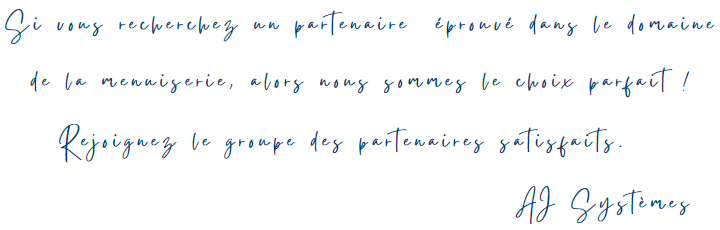 Si vous recherchez un partenaire éprouvé dans le domaine
de la menuiserie, alors nous sommes le choix parfait !
Rejoignez le groupe des partenaires satisfaits.
AJ Systèmes